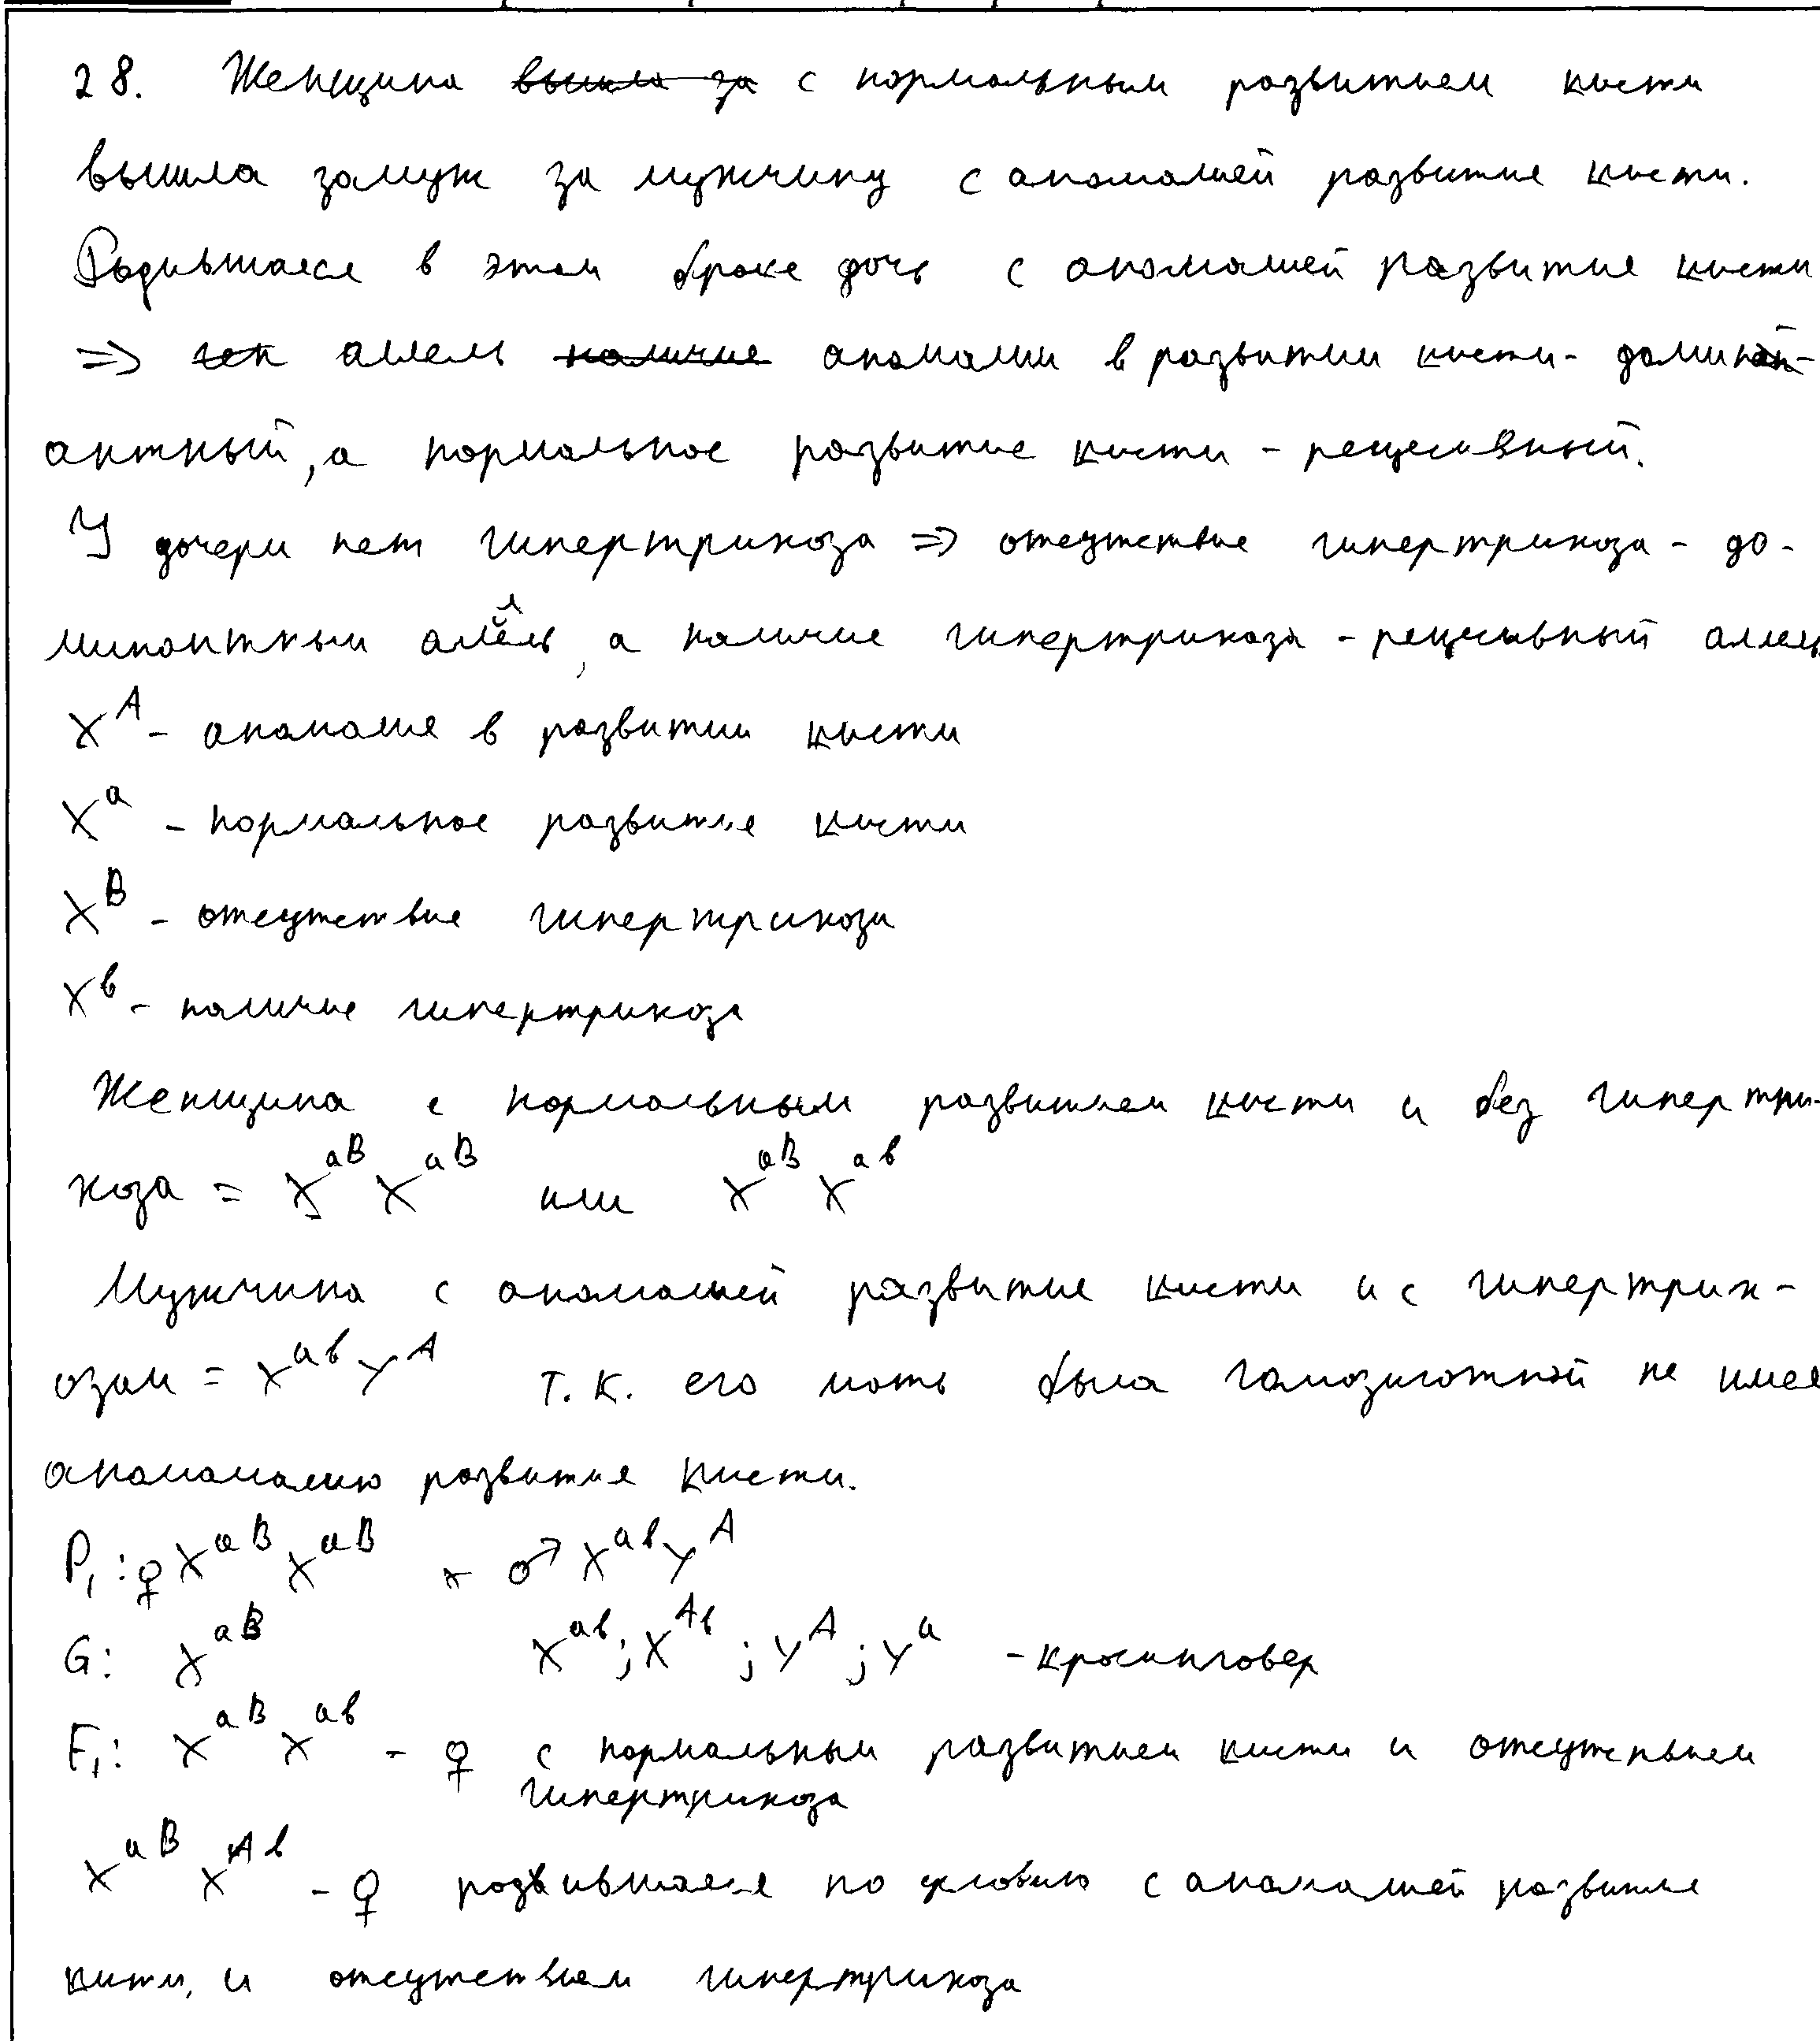 28. Женщина вышла за с нормальным развитием кисти
вышла замуж за мужчину с аномалией развитие кисти.
Родившаяся в этом браке дочь с аномалией развитие кисти
=> ген аллель наличие аномалии в развитии кисти - домин
антный, а нормальное развитие кисти - рецесивный.
У дочери нет гипертрикоза => отсутствие гипертрикоза - до-
минантный аллель, а наличие гипертрикоза - рецесивный аллель
X^A - аномалия в развитии кисти
X^a - нормальное развитие кисти
X^B - отсутствие гипертрикоза
X^в - наличие гипертрикоза
Женщина с нормальным развитием кисти и без гипертри-
коза = X^aB X^aB или X^aB X^aв
Мужчина с аномалией развитие кисти и с гипертрик-
озом = X^aв Y^A т.к. его мать была гомозиготной не имея
анамомалию развития кисти.
P₁: ♀ X^aB X^aB × ♂ X^aв Y^A
G: X^aB X^aв; X^Aв; Y^A; Y^a - кросинговер
F₁: X^aB X^aв - ♀ с нормальным развитием кисти и отсутсвием
гипертрикоза
X^aB X^Aв - ♀ по условию с аномалией развитие
кити, и отсутствием гипертрикоза